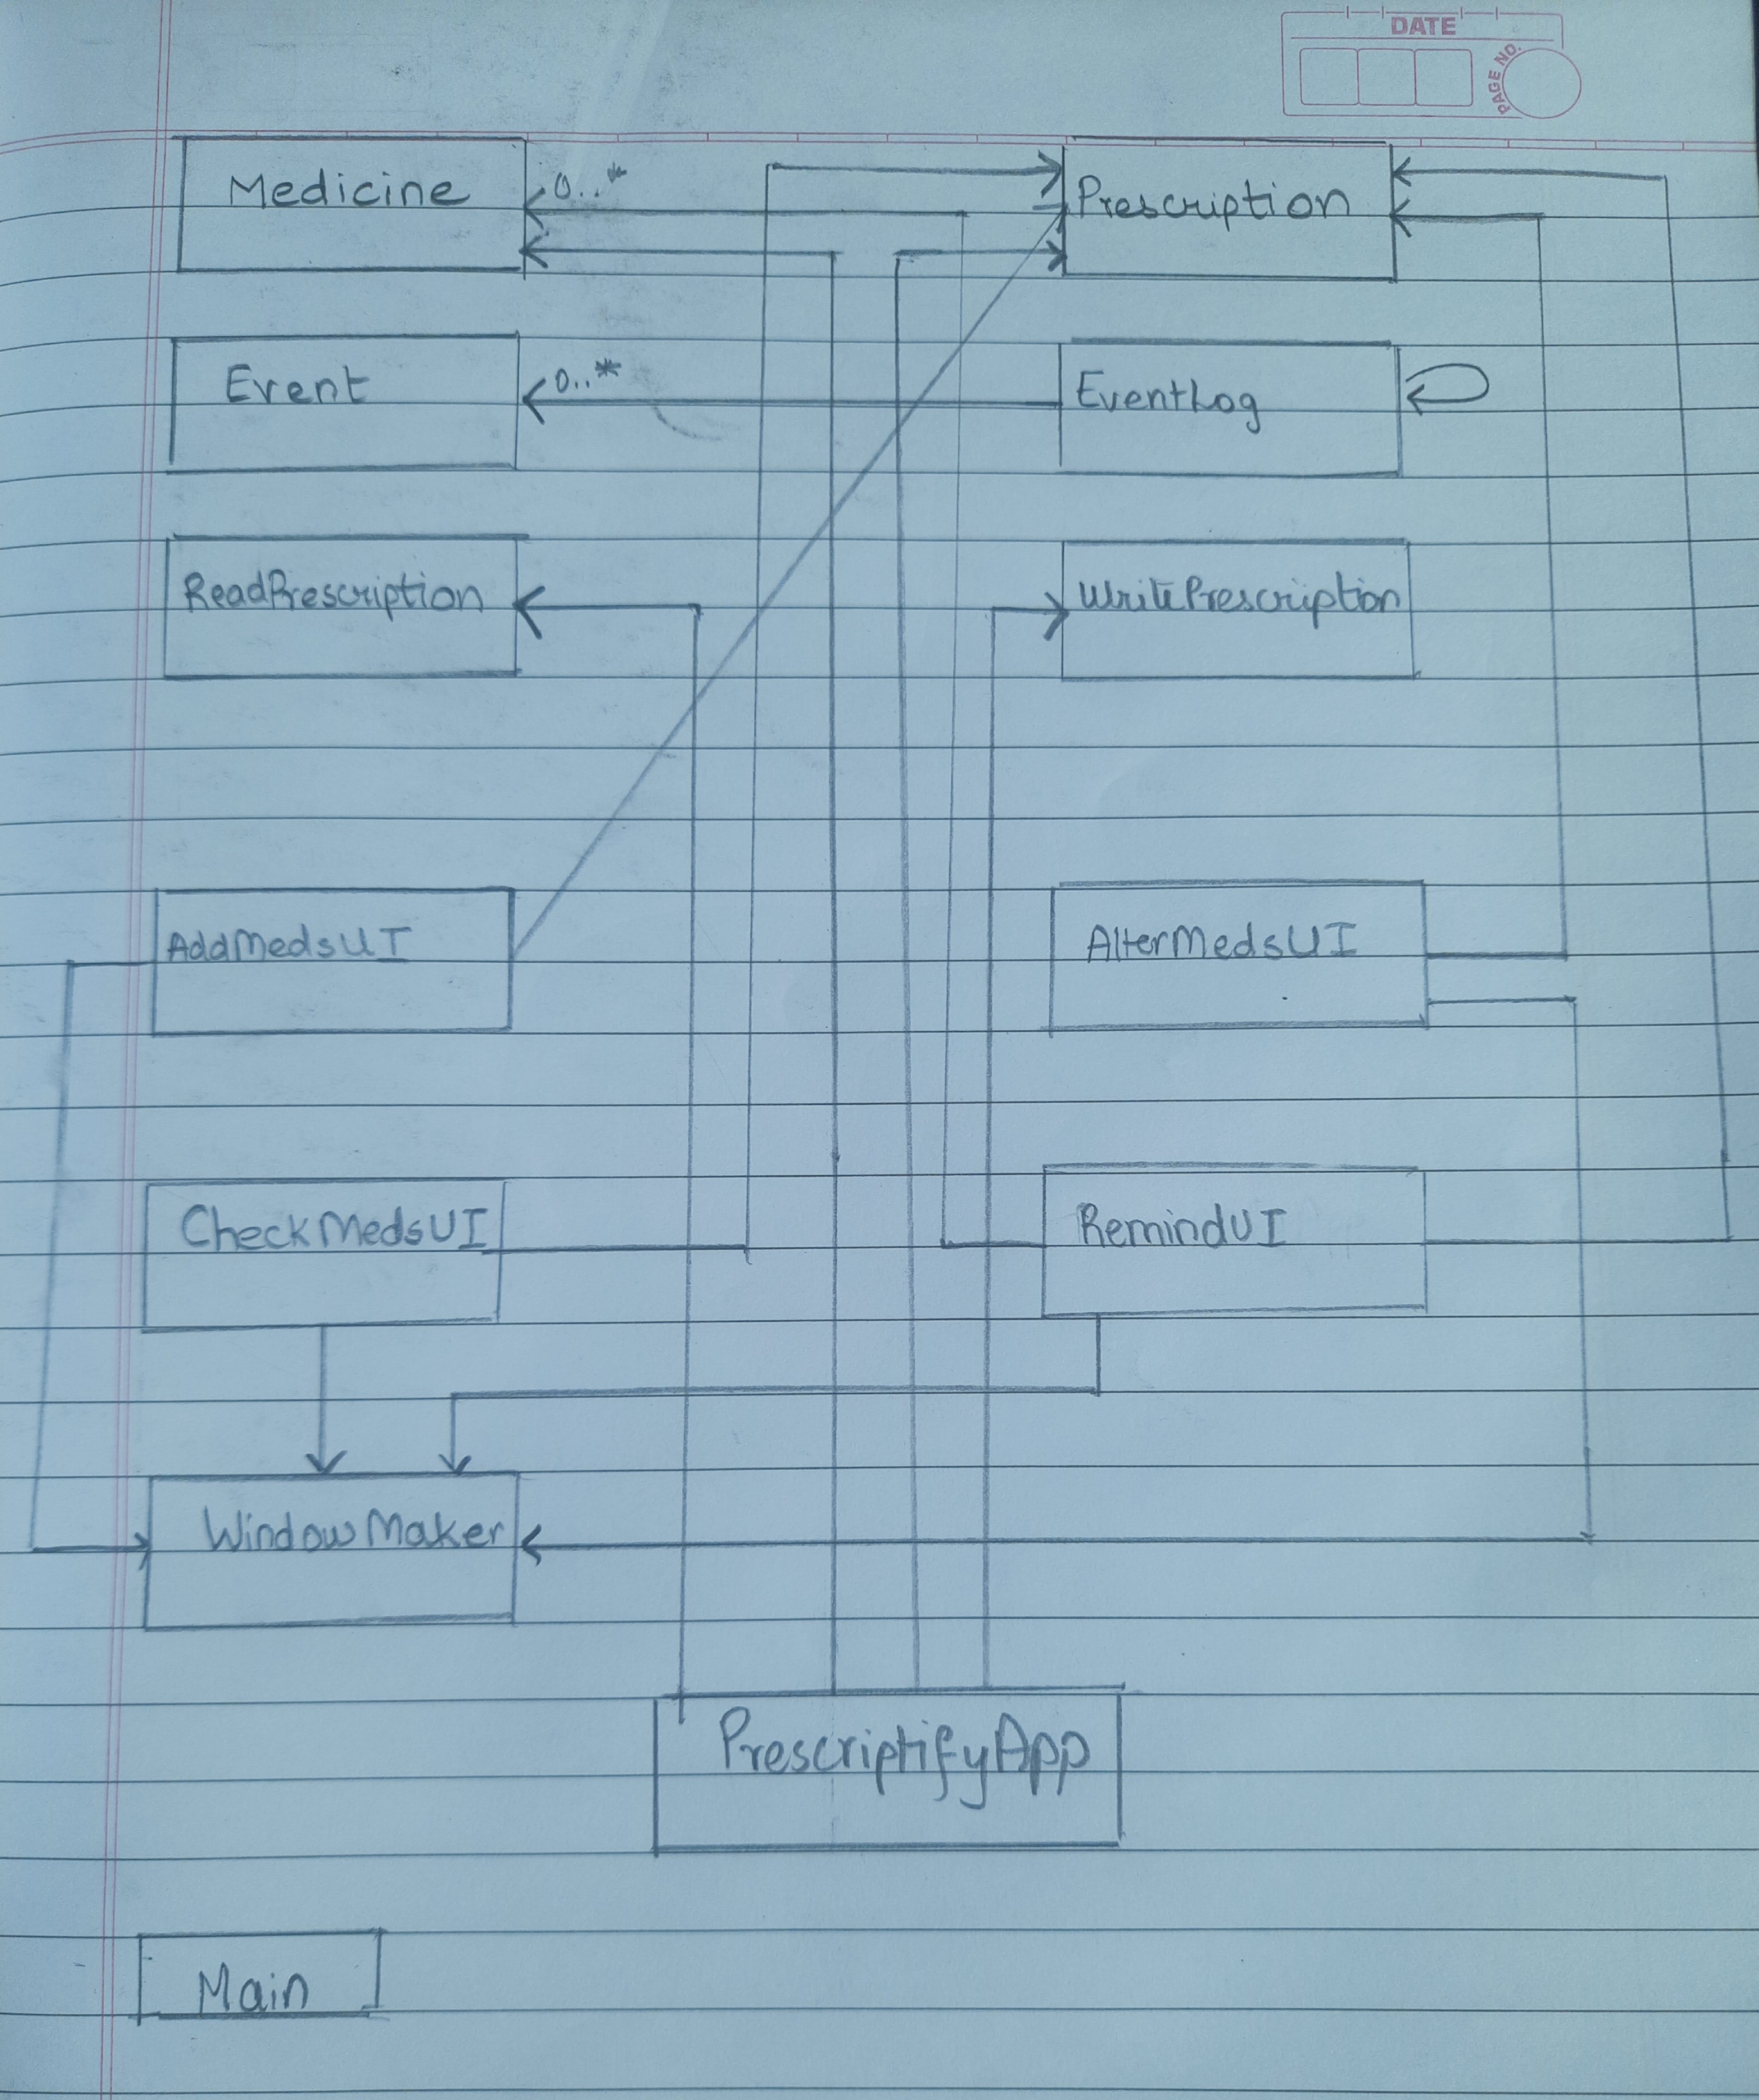 DATE
PAGE NO.
Medicine
0..*
Prescription
Event
0..*
EventLog
ReadPrescription
WritePrescription
AddMedsUI
AlterMedsUI
CheckMedsUI
RemindUI
WindowMaker
PrescriptifyApp
Main